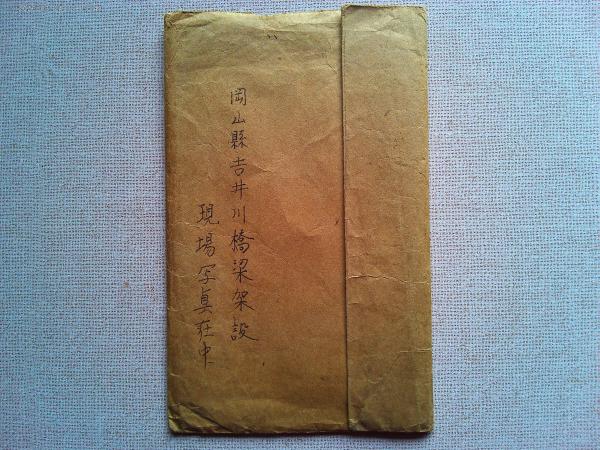 岡山縣吉井川橋梁架設
現場写真在中